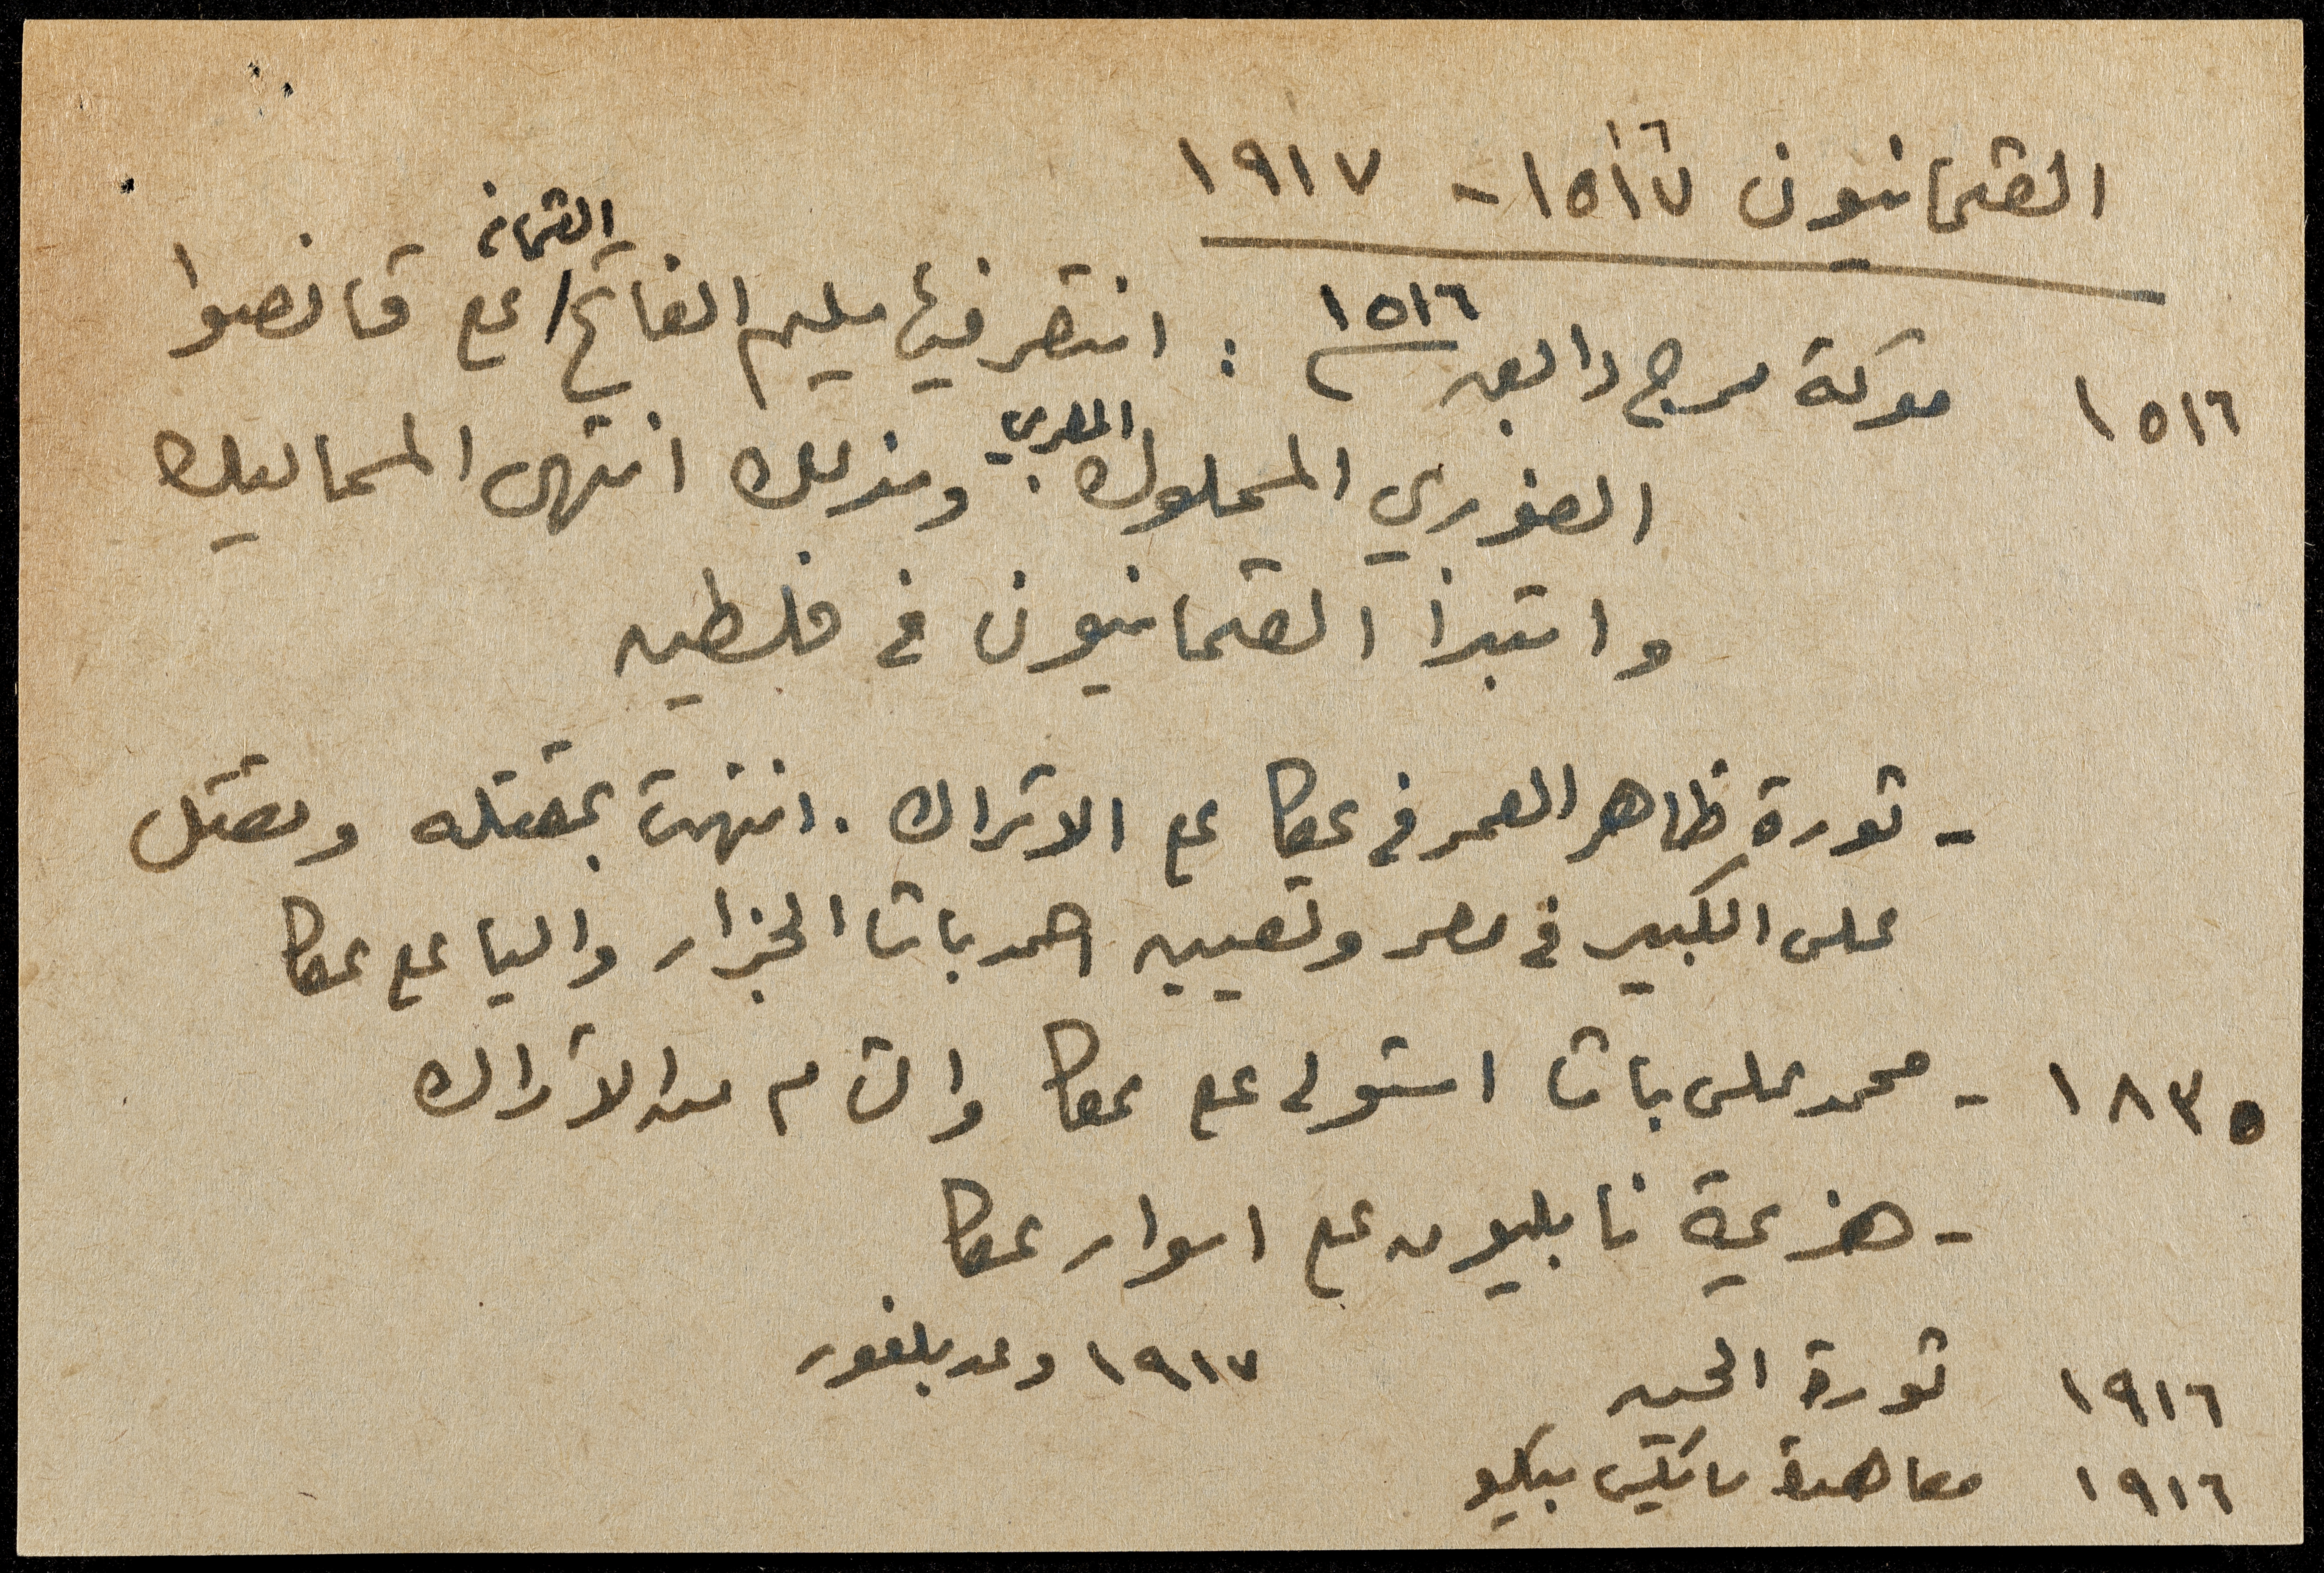 العثمانيون ١٥١٦ - ١٩١٧
١٥١٦ معركة مرج دابق ١٥١٦ : انتصر فيها سليم الفاتح العثماني على قانصوا
الغوري المملوك المصري . وبذلك انتهى المماليك
وابتدأ العثمانيون في فلسطين
- ثورة ظاهر العمر في عكا على الاتراك . انتهت بمقتله ومقتل
على الكبير في مصر وتعيين احمد باشا الجزار واليا على عكا
١٨٣٥ - محمد على باشا استولى على عكا والشام من الاتراك
- هزيمة نابليون على اسوار عكا
١٩١٦ ثورة الحسين ١٩١٧ وعد بلفور
١٩١٦ معاهدة سايكس بيكو